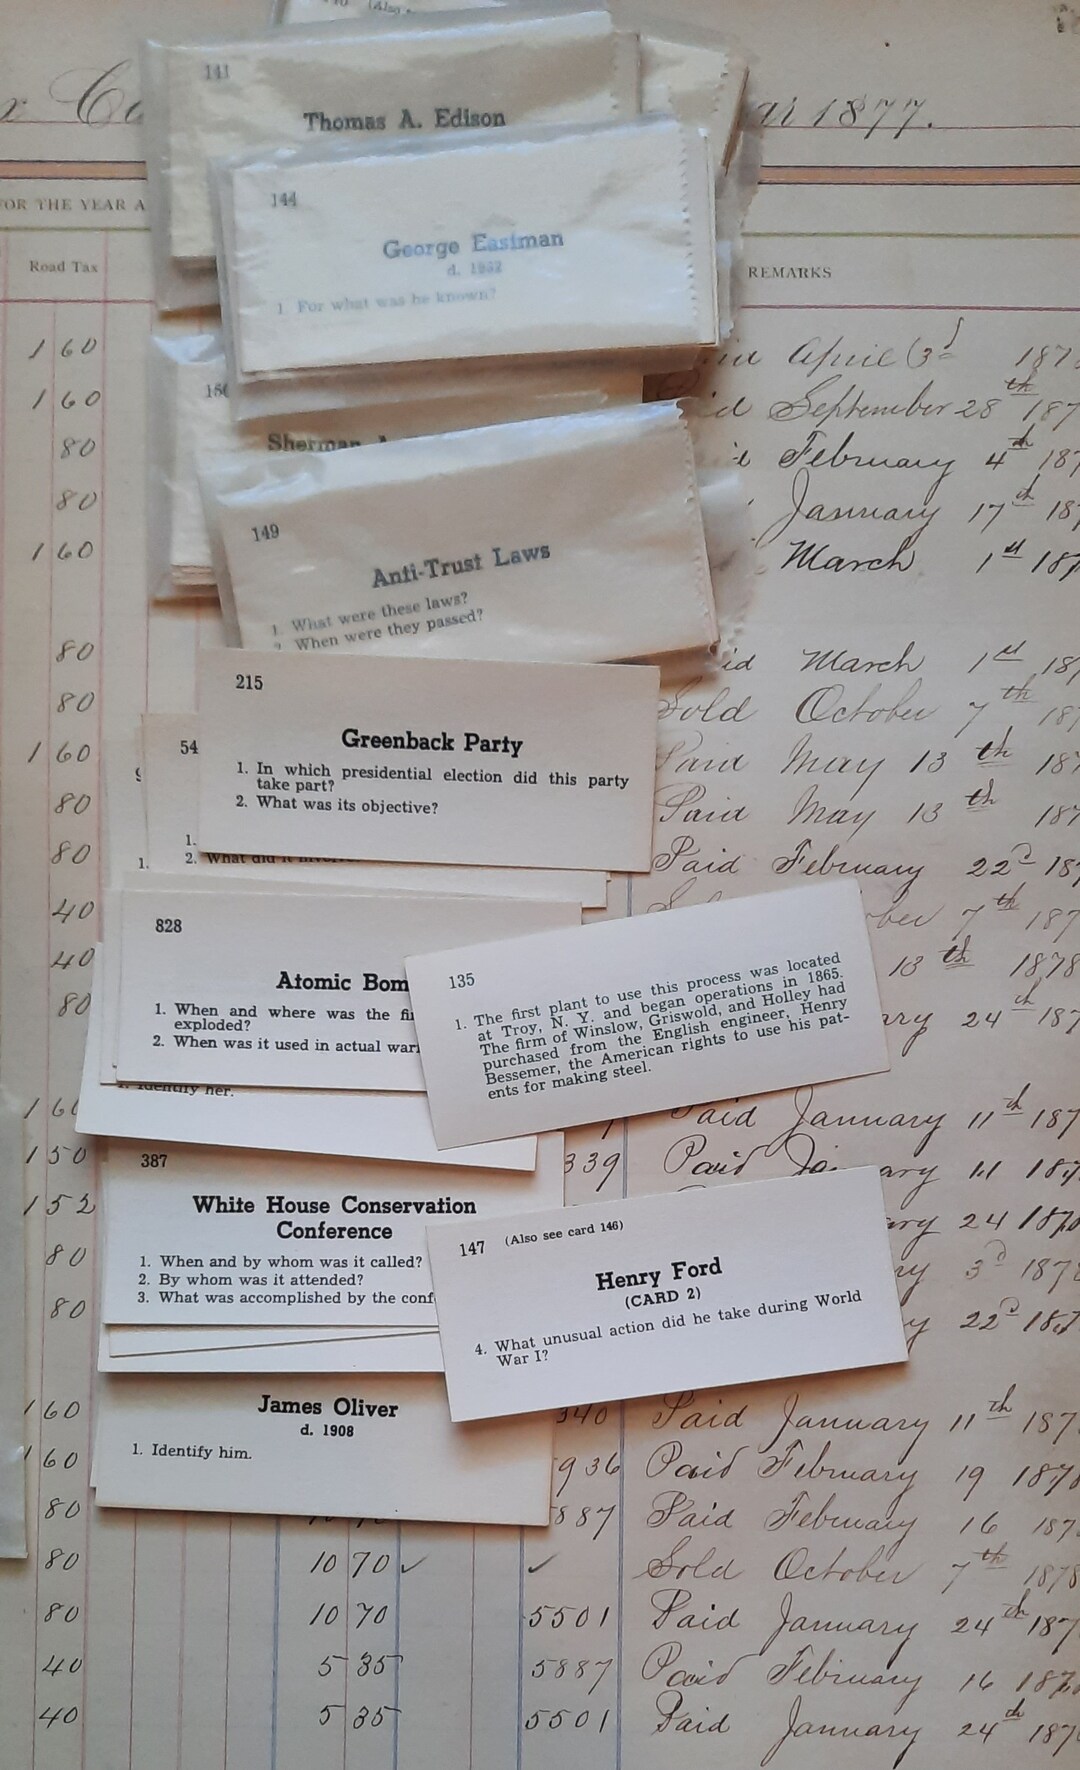 (Also
141
Thomas A. Edison
1877.
FOR THE YEAR A
144
George Eastman
d. 1932
1 For what was he known?
Road Tax
REMARKS
1 60
April 187
1 60
September 28 th 187
80
February 4 th 187
Sherman A
80
January 17 th 187
149
Anti-Trust Laws
1. What were these laws?
2 When were they passed?
1 60
March 1 st 187
80
March 1 st 18
215
Greenback Party
1. In which presidential election did this party
take part?
2. What was its objective?
80
Sold October 7 th 18
54
1.
2. What did it
1.
1 60
Paid May 13 th 187
80
Paid May 13 th 187
80
Paid February 22 d 187
40
7 th 18
828
Atomic Bom
1. When and where was the fi
exploded?
2. When was it used in actual war
135
1. The first plant to use this process was located
at Troy, N. Y. and began operations in 1865.
The firm of Winslow, Griswold, and Holley had
purchased from the English engineer, Henry
Bessemer, the American rights to use his pat-
ents for making steel.
40
13 th 1878
80
24 th 187
1. Identify her.
1 60
Paid January 11 th 187
1 50
339
Paid January 11 187
387
White House Conservation
Conference
1. When and by whom was it called?
2. By whom was it attended?
3. What was accomplished by the conf
1 52
24 187
147 (Also see card 146)
Henry Ford
(CARD 2)
4. What unusual action did he take during World
War I?
80
3 d 187
80
22 d 187
James Oliver
d. 1908
1. Identify him.
1 60
340
Paid January 11 th 187
1 60
936
Paid February 19 187
80
887
Paid February 16 187
80
10 70 ✓ ✓
Sold October 7 th 1878
80
10 70
5501
Paid January 24 th 187
40
5 35
5887
Paid February 16 187
40
5 35
5501
Paid January 24 th 187